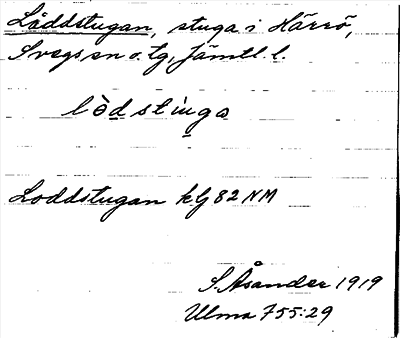 Låddstugan, stuga i Härrö,
Svegs sn o. tg, Jämtl. l.
lòdstiŋga
Loddstugan kG 82 NM
S. Åsander 1919
Ulma 755:29